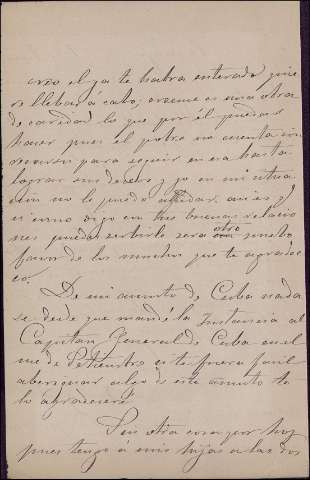 creo el ya te habra enterado quie
re llebar á cabo; creeme es una obra
de caredad lo que por él puedas
hacer pues el pobre no cuenta con
recursos para seguir en esa hasta
lograr sus deceos y yo en mi situa
cion no le puedo ayudar, asi es q
si como digo en tus buenas relacio
nes puedes serbirle sera otro
favor de los muchos que te agradez
co.
De mi asunto de Cuba nada
se desde que mandé la Instancia al
Capitan General de Cuba en el
mes de Setiembre si te fuera facil
aberiguar algo de este asunto te
lo agradeceré
Sin otra cosa por hoy
pues tengo á mis hijas a las dos